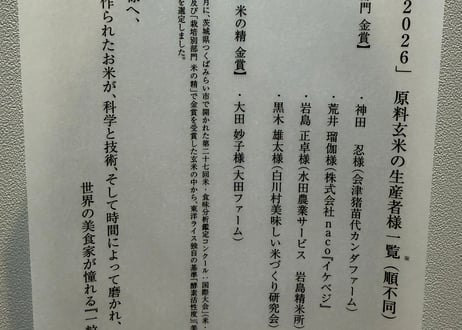 2026」 原料玄米の生産者様一覧(順不同)※
門 金賞】
・神田 忍様(会津猪苗代カンダファーム)
・荒井 瑠伽様(株式会社naco『イケベジ』
・岩島 正卓様(水田農業サービス 岩島精米所)
・黒木 雄太様(白川村美味しい米づくり研究会)
米の精 金賞】
・大田 妙子様(大田ファーム)
月に、茨城県つくばみらい市で開かれた第二十七回米・食味分析鑑定コンクール:国際大会『米・
及び「栽培別部門 米の精」で金賞を受賞した玄米の中から、東洋ライス独自の基準『酵素活性度』『美
を選定しました。
様へ、
作られたお米が、科学と技術、そして時間によって磨かれ、
世界の美食家が憧れる『一粒